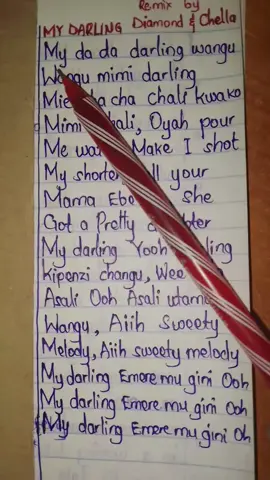 Remix by
MY DARLING Diamond & Chella
My da da darling wangu
Wangu mimi darling
Mie cha chali kwako
Mimi kali, Oyah pour
Me wa Make I shot
My shorte ll your
Mama Ebe she
Got a Pretty d ter
My darling Yooh ling
Kipenzi changu, Wee
Asali Ooh Asali utam
Wangu, Aiih Sweety
Melody, Aiih sweety melody
My darling Emere mu gini Ooh
My darling Emere mu gini Ooh
My darling Emere mu gini Oh